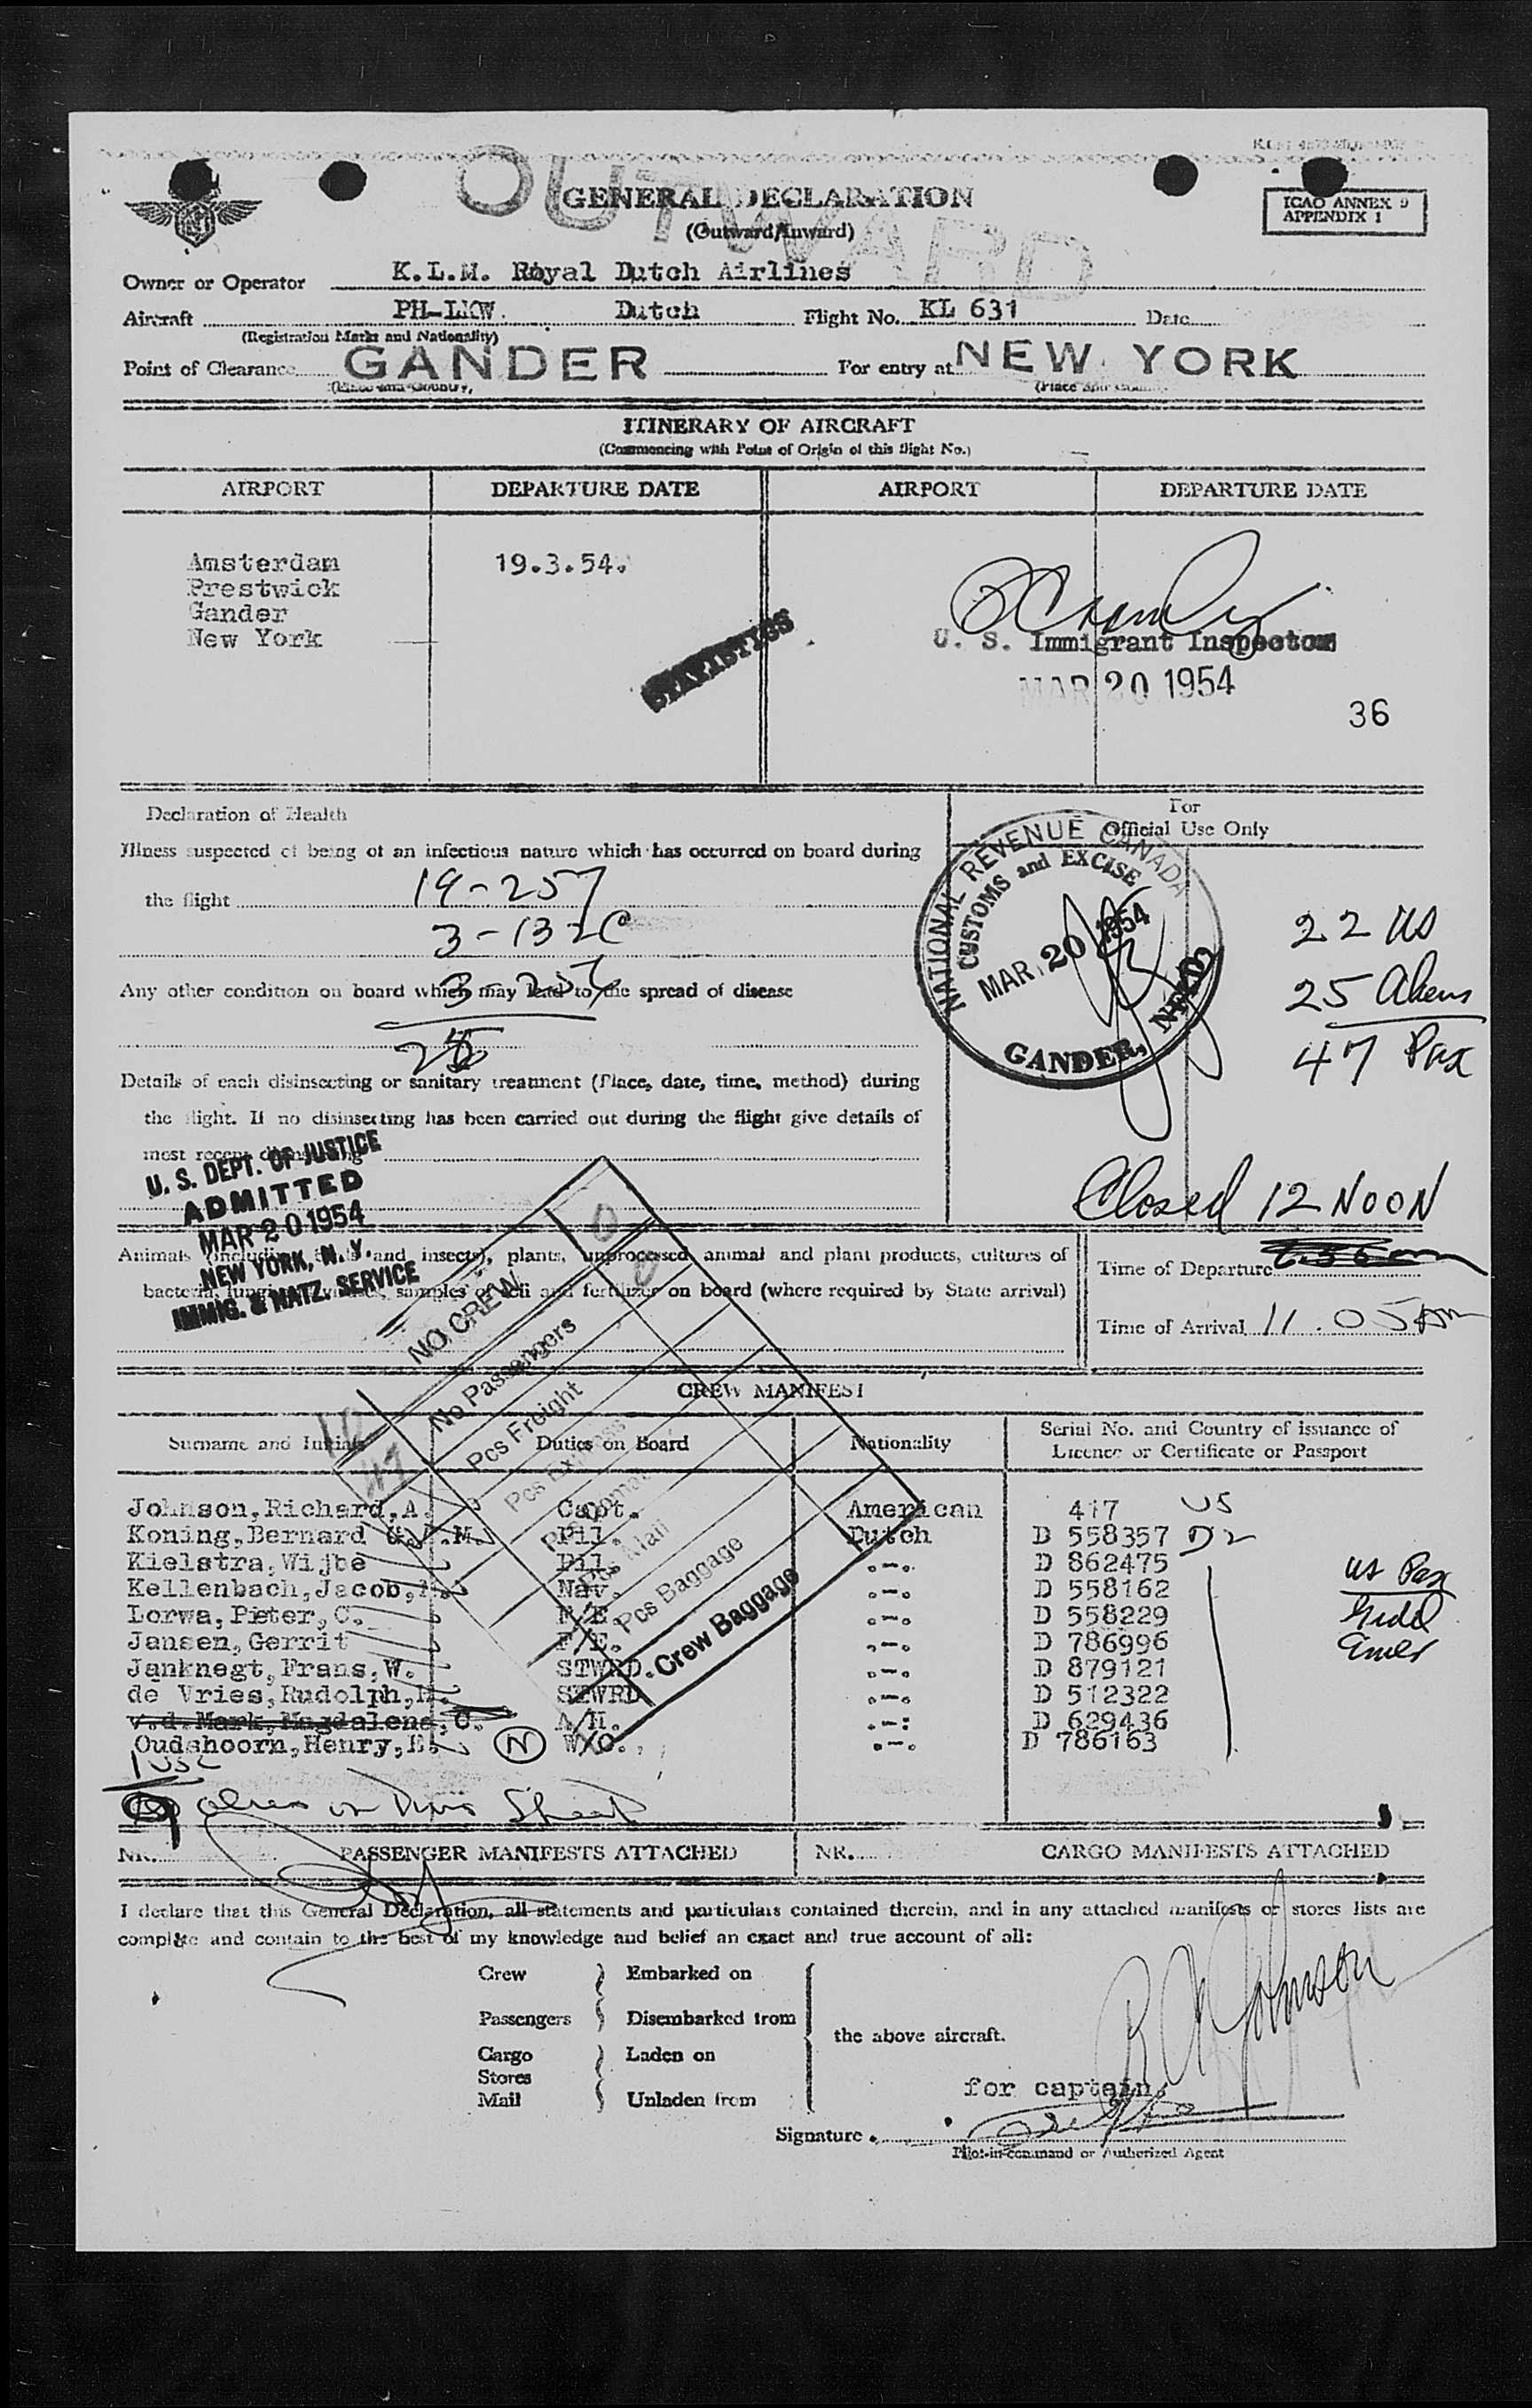 OUTWARD
GENERAL DECLARATION
(Outward/Inward)
ICAO ANNEX 9
APPENDIX 1
Owner or Operator K.L.M. Royal Dutch Airlines
Aircraft PH-LKW. Dutch Flight No. KL 631 Date
(Registration Marks and Nationality)
Point of Clearance GANDER For entry at NEW YORK
(Place and Country)
ITINERARY OF AIRCRAFT
(Commencing with Point of Origin of this flight No.)
AIRPORT DEPARTURE DATE AIRPORT DEPARTURE DATE
Amsterdam 19.3.54.
Prestwick
Gander
New York
STATISTICS
U. S. Immigrant Inspector
MAR 20 1954
36
Declaration of Health
Illness suspected of being of an infectious nature which has occurred on board during
the flight 19-257
Any other condition on board which may lead to the spread of disease
Details of each disinsecting or sanitary treatment (Place, date, time, method) during
the flight. If no disinsecting has been carried out during the flight give details of
most recent disinsecting
For
Official Use Only
NATIONAL REVENUE CANADA
CUSTOMS and EXCISE
MAR 20 1954
GANDER, NFLD
22 US
25 Aliens
47 Pax
Closed 12 NOON
U. S. DEPT. OF JUSTICE
ADMITTED
MAR 20 1954
NEW YORK, N. Y.
IMMIG. & NATZ. SERVICE
Animals (including birds and insects), plants, unprocessed animal and plant products, cultures of
bacteria, fungi, viruses, samples of soil and fertilizer on board (where required by State arrival)
Time of Departure
Time of Arrival 11.05 am
NO CREW
No Passengers
Pcs Freight
Pcs Express
Pcs Mail
Pcs Baggage
Crew Baggage
10
47
CREW MANIFEST
Surname and Initials Duties on Board Nationality Serial No. and Country of issuance of
Licence or Certificate or Passport
Johnson,Richard,A. Capt. American 417 US
Koning,Bernard M. Pil. Dutch D 558357
Kielstra,Wijbe Pil. -"- D 862475
Kellenbach,Jacob, Nav. -"- D 558162
Lorwa,Pieter,C. F/E. -"- D 558229
Jansen,Gerrit F/E. -"- D 786996
Janknegt,Frans,W. STWRD. -"- D 879121
de Vries,Rudolph, STWRD -"- D 512322
v.d.Mark,Magdalena,C. A/H. -"- D 629436
Oudshoorn,Henry,E. N W/O. -"- D 786163
US Pax
1 USC
9 aliens on this Sheet
NR. PASSENGER MANIFESTS ATTACHED NR. CARGO MANIFESTS ATTACHED
I declare that this General Declaration, all statements and particulars contained therein, and in any attached manifests or stores lists are
complete and contain to the best of my knowledge and belief an exact and true account of all:
Crew Embarked on
Passengers Disembarked from
the above aircraft.
Cargo Laden on
Stores
Mail Unladen from
R A Johnson
for captain,
Signature
Pilot-in-command or Authorized Agent